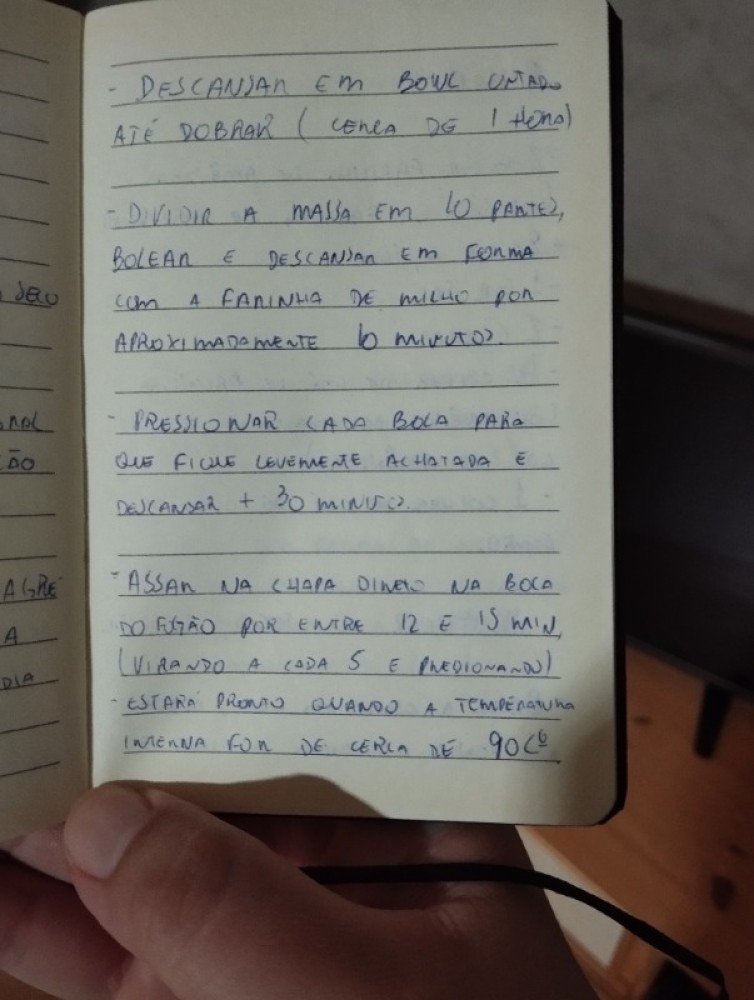 - DESCANSAR EM BOWL UNTADO
ATÉ DOBRAR ( CERCA DE 1 HORA)
- DIVIDIR A MASSA EM 10 PARTES,
BOLEAR E DESCANSAR EM FORMA
SECO
COM A FARINHA DE MILHO POR
APROXIMADAMENTE 10 MINUTOS.
- PRESSIONAR CADA BOLA PARA
QUE FIQUE LEVEMENTE ACHATADA E
ÃO
DESCANSAR + 30 MINUTOS.
- ASSAR NA CHAPA DIRETO NA BOCA
AGRE
DO FOGÃO POR ENTRE 12 E 15 MIN,
A
(VIRANDO A CADA 5 E PRESIONANDO)
DIA
- ESTARÁ PRONTO QUANDO A TEMPERATURA
INTERNA FOR DE CERCA DE 90Cº.